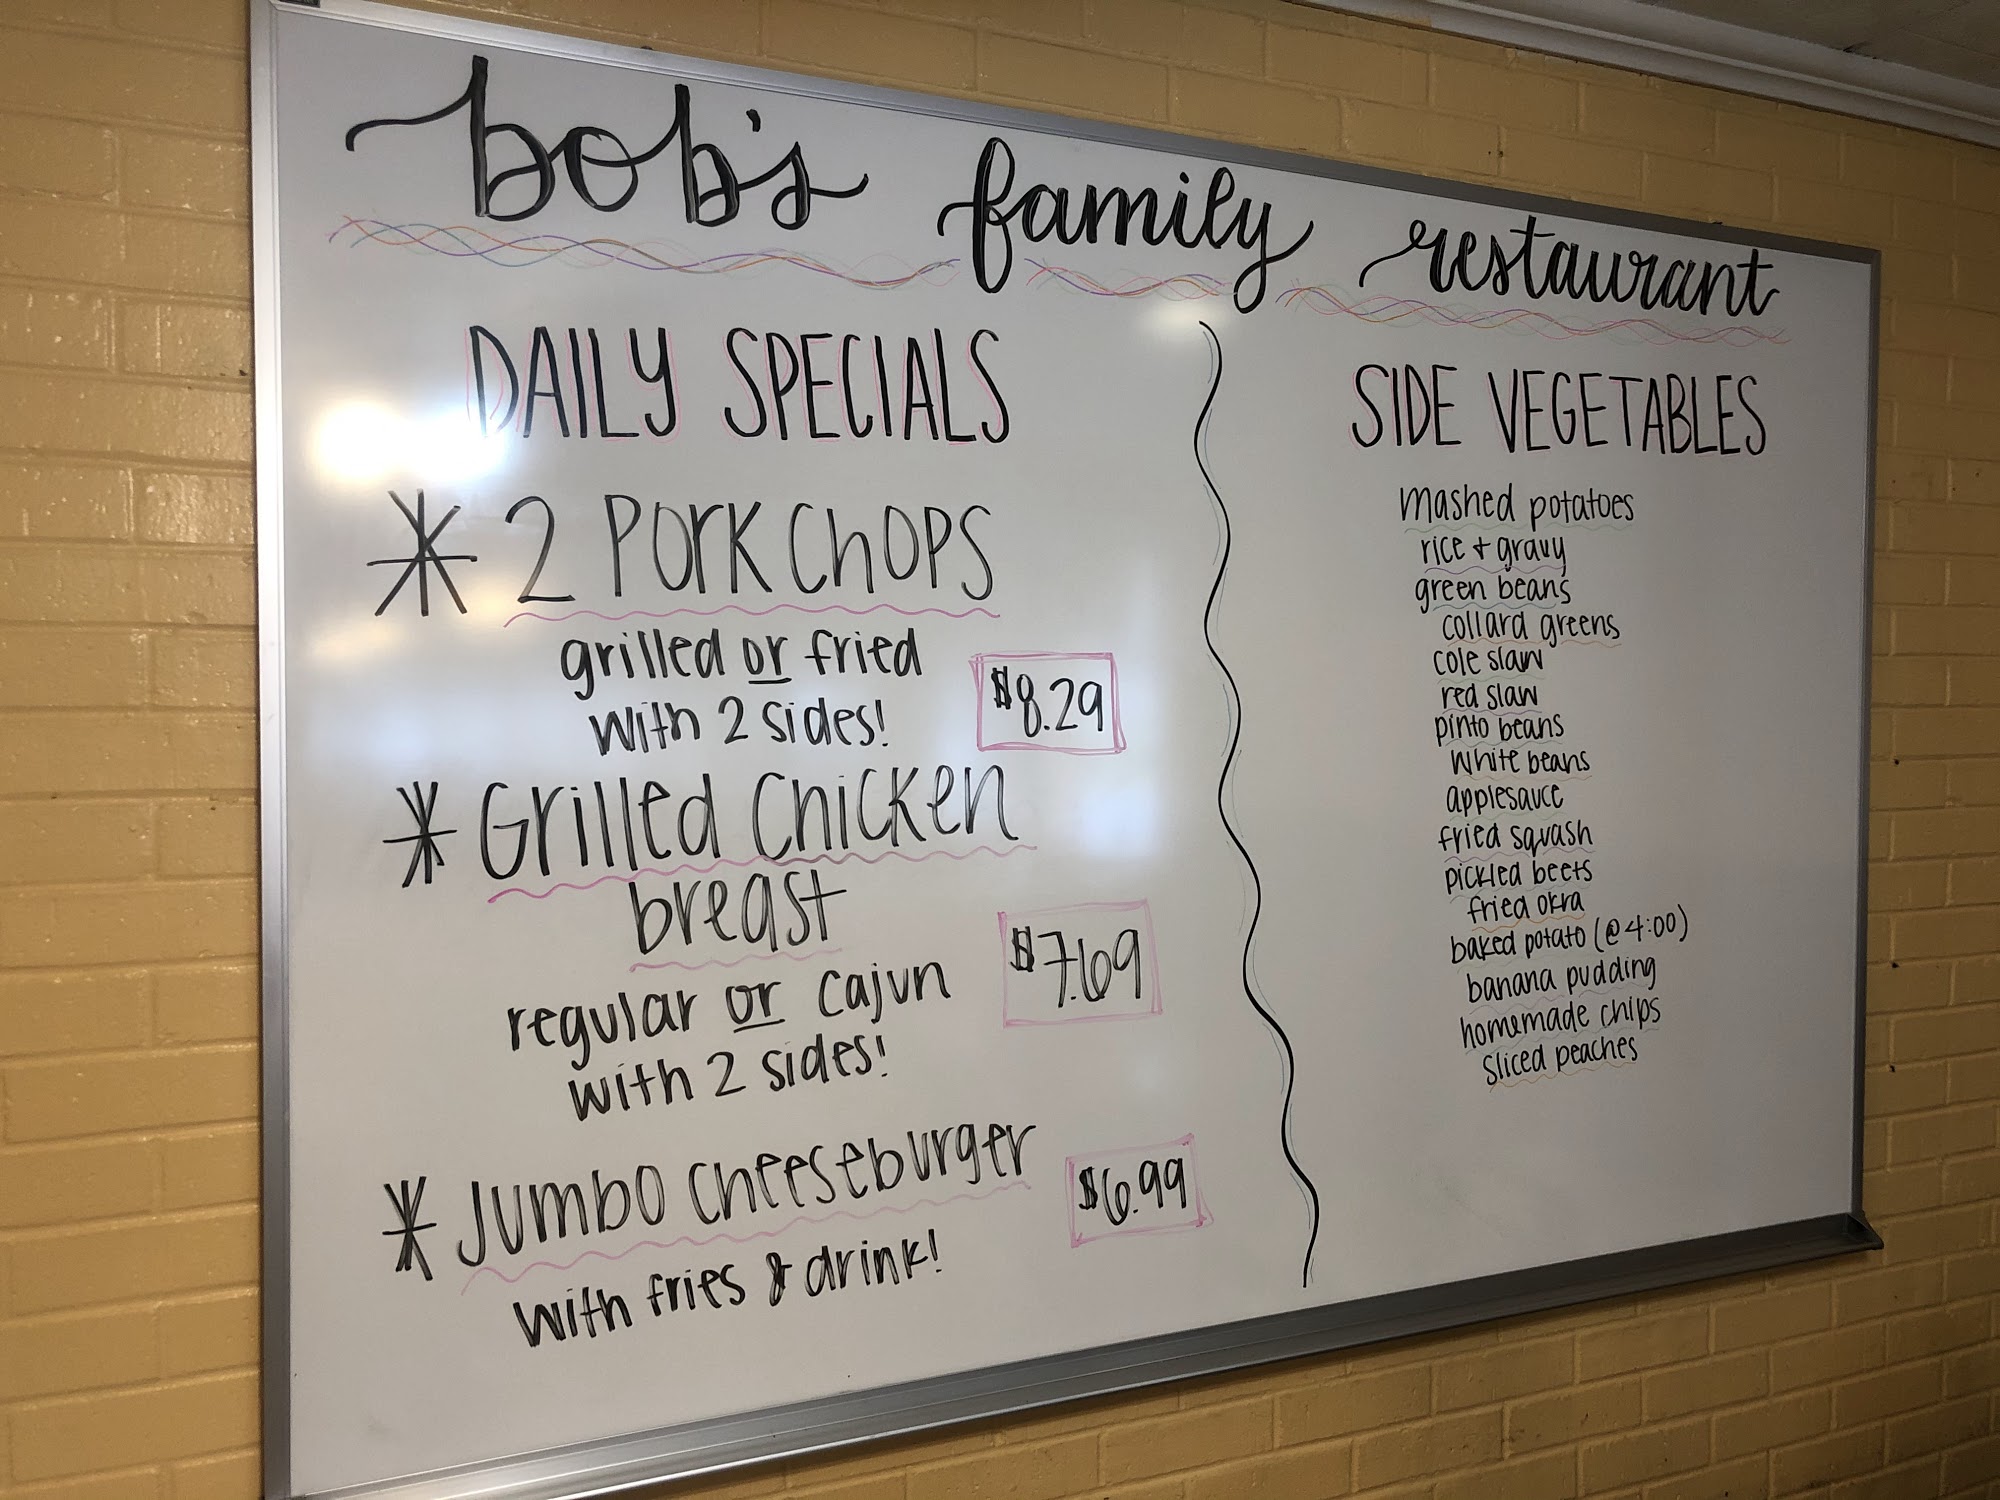 bob's family restaurant
DAILY SPECIALS
* 2 PORK ChOPS
grilled or fried
with 2 sides!
$8.29
* Grilled Chicken
breast
regular or cajun
with 2 sides!
$7.69
* Jumbo Cheeseburger
with fries & drink!
$6.99
SIDE VEGETABLES
mashed potatoes
rice + gravy
green beans
collard greens
cole slaw
red slaw
pinto beans
white beans
applesauce
fried squash
pickled beets
fried okra
baked potato (@ 4:00)
banana pudding
homemade chips
sliced peaches